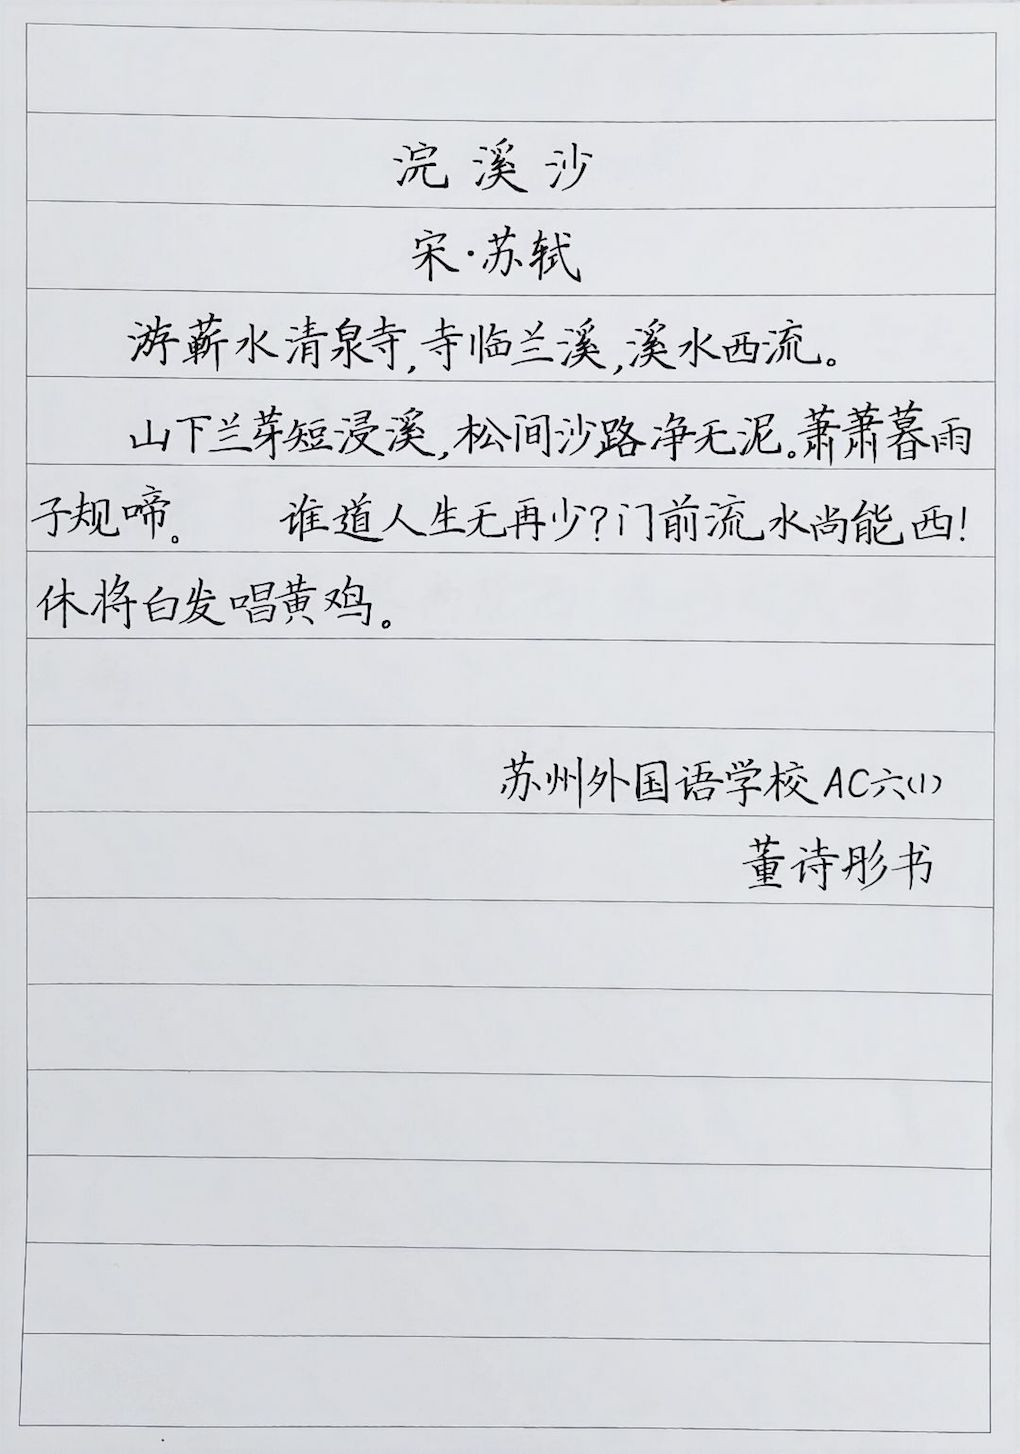 浣溪沙
宋·苏轼
游蕲水清泉寺,寺临兰溪,溪水西流。
山下兰芽短浸溪,松间沙路净无泥。萧萧暮雨
子规啼。 谁道人生无再少?门前流水尚能西!
休将白发唱黄鸡。
苏州外国语学校 AC六(1)
董诗彤书